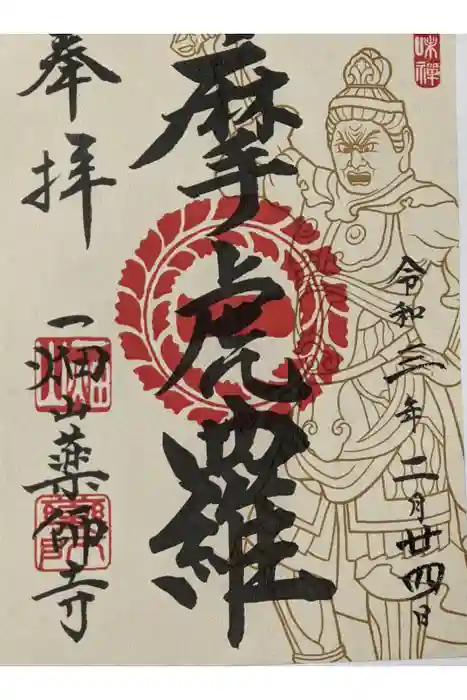 味禪
令和三年二月廿四日
摩虎羅
奉拝
一畑山薬師寺